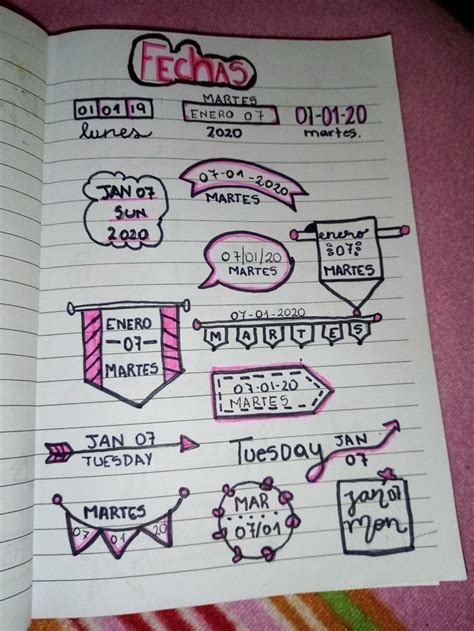 FECHAS
01 01 19
lunes
MARTES
ENERO 07
2020
01-01-20
martes.
JAN 07
SUN
2020
07-01-2020
MARTES
07/01/20
MARTES
enero
07
MARTES
ENERO
-07-
MARTES
07-01-2020
MARTES
07-01-20
MARTES
JAN 07
TUESDAY
TUESDAY
JAN
07
MARTES
07 01 20
MAR
07/01
Jan 07
Mon